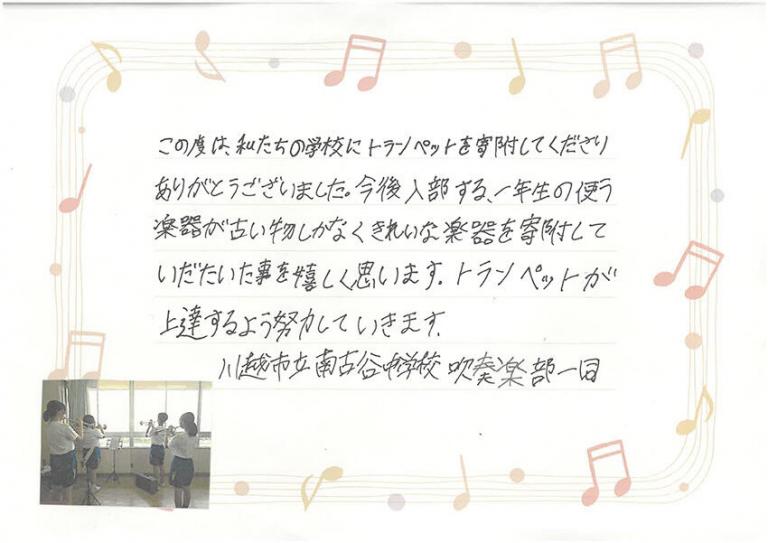 この度は、私たちの学校にトランペットを寄附してくださり
ありがとうございました。今後入部する、一年生の使う
楽器が古い物しかなくきれいな楽器を寄附して
いだたいた事を嬉しく思います。トランペットが
上達するよう努力していきます。
川越市立南古谷中学校 吹奏楽部一同